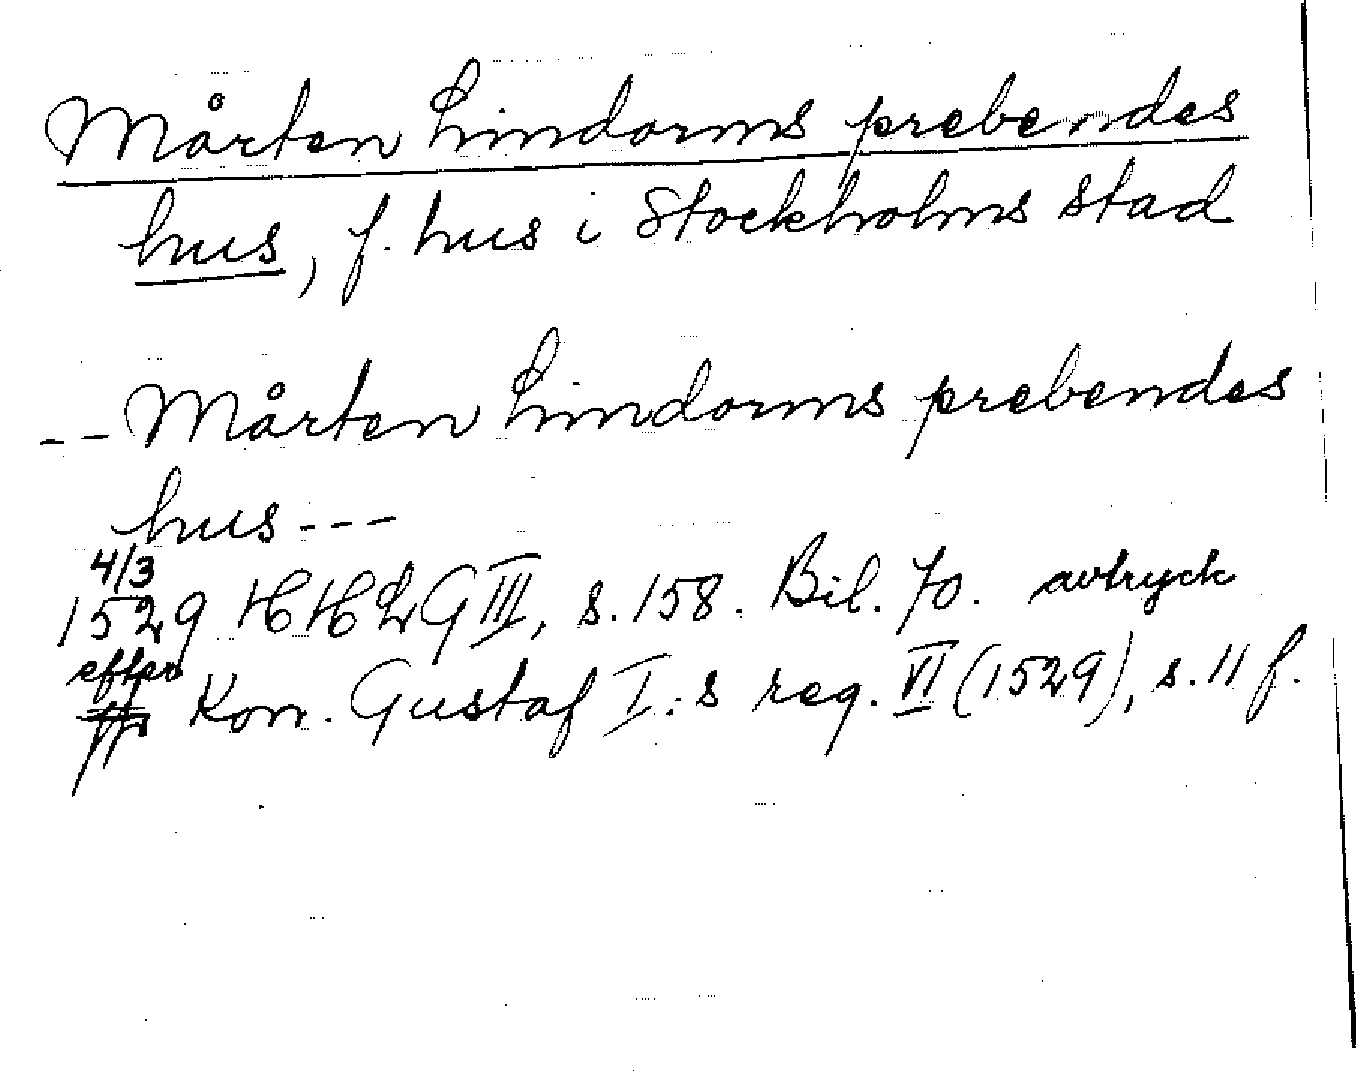 Mårten Lindorms prebendes
hus, f. hus i Stockholms stad
-- Mårten Lindorms prebendes
hus ---
4/3
1529 HHLG III, s. 158. Bil. 70. avtryck
efter
Kon. Gustaf I:s reg. VI (1529), s. 11 f.